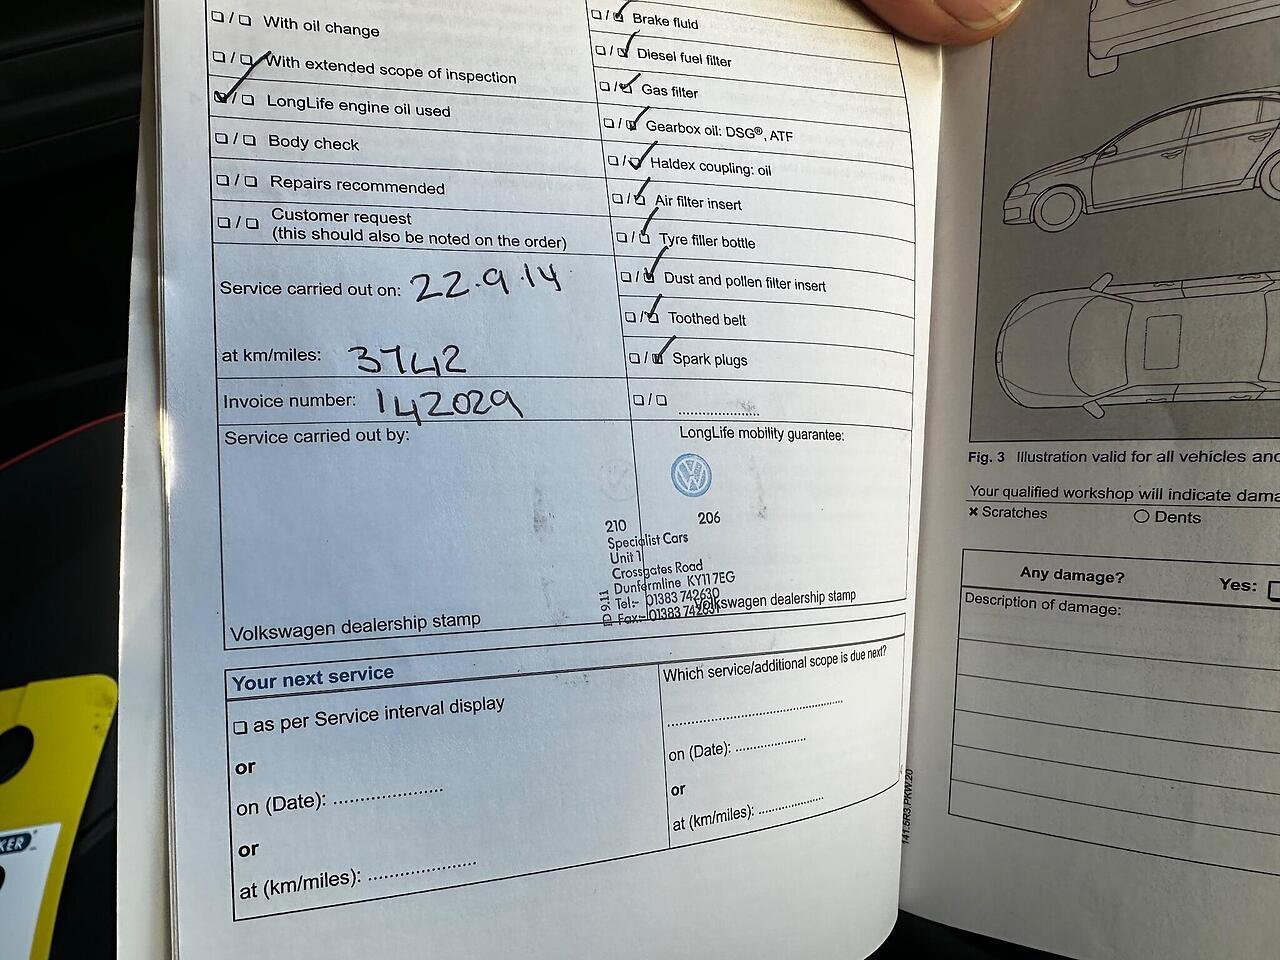 ❏ / ❏ With oil change
❏ / ❏ With extended scope of inspection
❏ / ❏ LongLife engine oil used
❏ / ❏ Body check
❏ / ❏ Repairs recommended
❏ / ❏ Customer request
(this should also be noted on the order)
Service carried out on: 22.9.14
at km/miles: 3742
Invoice number: 142029
Service carried out by:
Volkswagen dealership stamp
❏ / ❏ Brake fluid
❏ / ❏ Diesel fuel filter
❏ / ❏ Gas filter
❏ / ❏ Gearbox oil: DSG®, ATF
❏ / ❏ Haldex coupling: oil
❏ / ❏ Air filter insert
❏ / ❏ Tyre filler bottle
❏ / ❏ Dust and pollen filter insert
❏ / ❏ Toothed belt
❏ / ❏ Spark plugs
❏ / ❏ ....................
LongLife mobility guarantee:
210 206
Specialist Cars
Unit 1
Crossgates Road
Dunfermline KY11 7EG
Tel:- 01383 742630
Fax:- 01383 742631
ID 9.11
Volkswagen dealership stamp
Your next service
❏ as per Service interval display
or
on (Date): ....................
or
at (km/miles): ....................
Which service/additional scope is due next?
........................................
on (Date): ................
or
at (km/miles): ................
141.5R3.PKW.20
Fig. 3 Illustration valid for all vehicles and
Your qualified workshop will indicate dama
× Scratches ○ Dents
Any damage? Yes: ❏
Description of damage:
KER